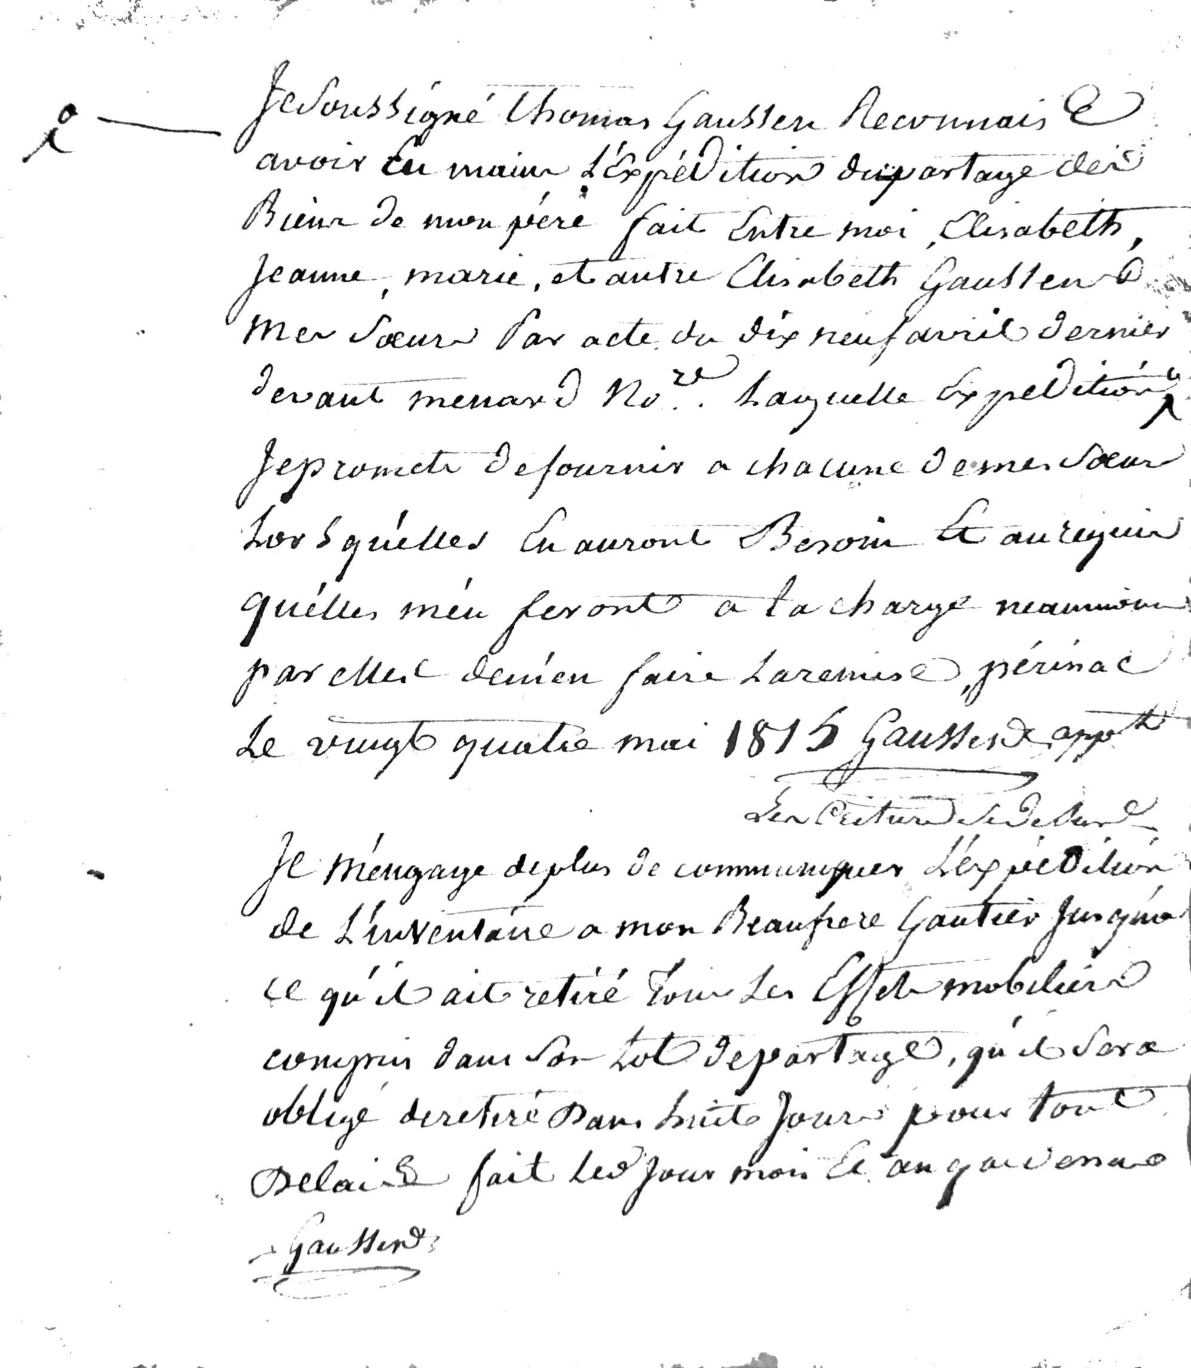 Je Soussigné thomas Gaussen Reconnais
avoir Eu mains L'Expédition du partage des
Biens de mon pére fait Entre moi, Elisabeth,
Jeanne, marie, et autre Elisabeth Gaussen
Mes Sœurs Par acte du dix neuf avril dernier
devant menard No.re Laquelle Expedition
Je promets de fournir a chacune de mes Sœurs
Lors qu'elles En auront Besoin Et au requis
qu'elles m'én feront a la charge neanmoins
par elles de m'en faire La remise, périnac
Le vingt quatre mai 1815 Gaussen app.t
Les
Je M'engage de plus de communiquer L'expedition
de L'inventaire a mon Beaufrere Gautier Jusqu'a
ce qu'il ait retiré tous Les Effets mobiliers
compris dans Son Lot de partage, qu'il Sera
obligé de retiré Dans huit Jours pour tout
Delai fait Les Jour mois Et an que dessus
Gaussen